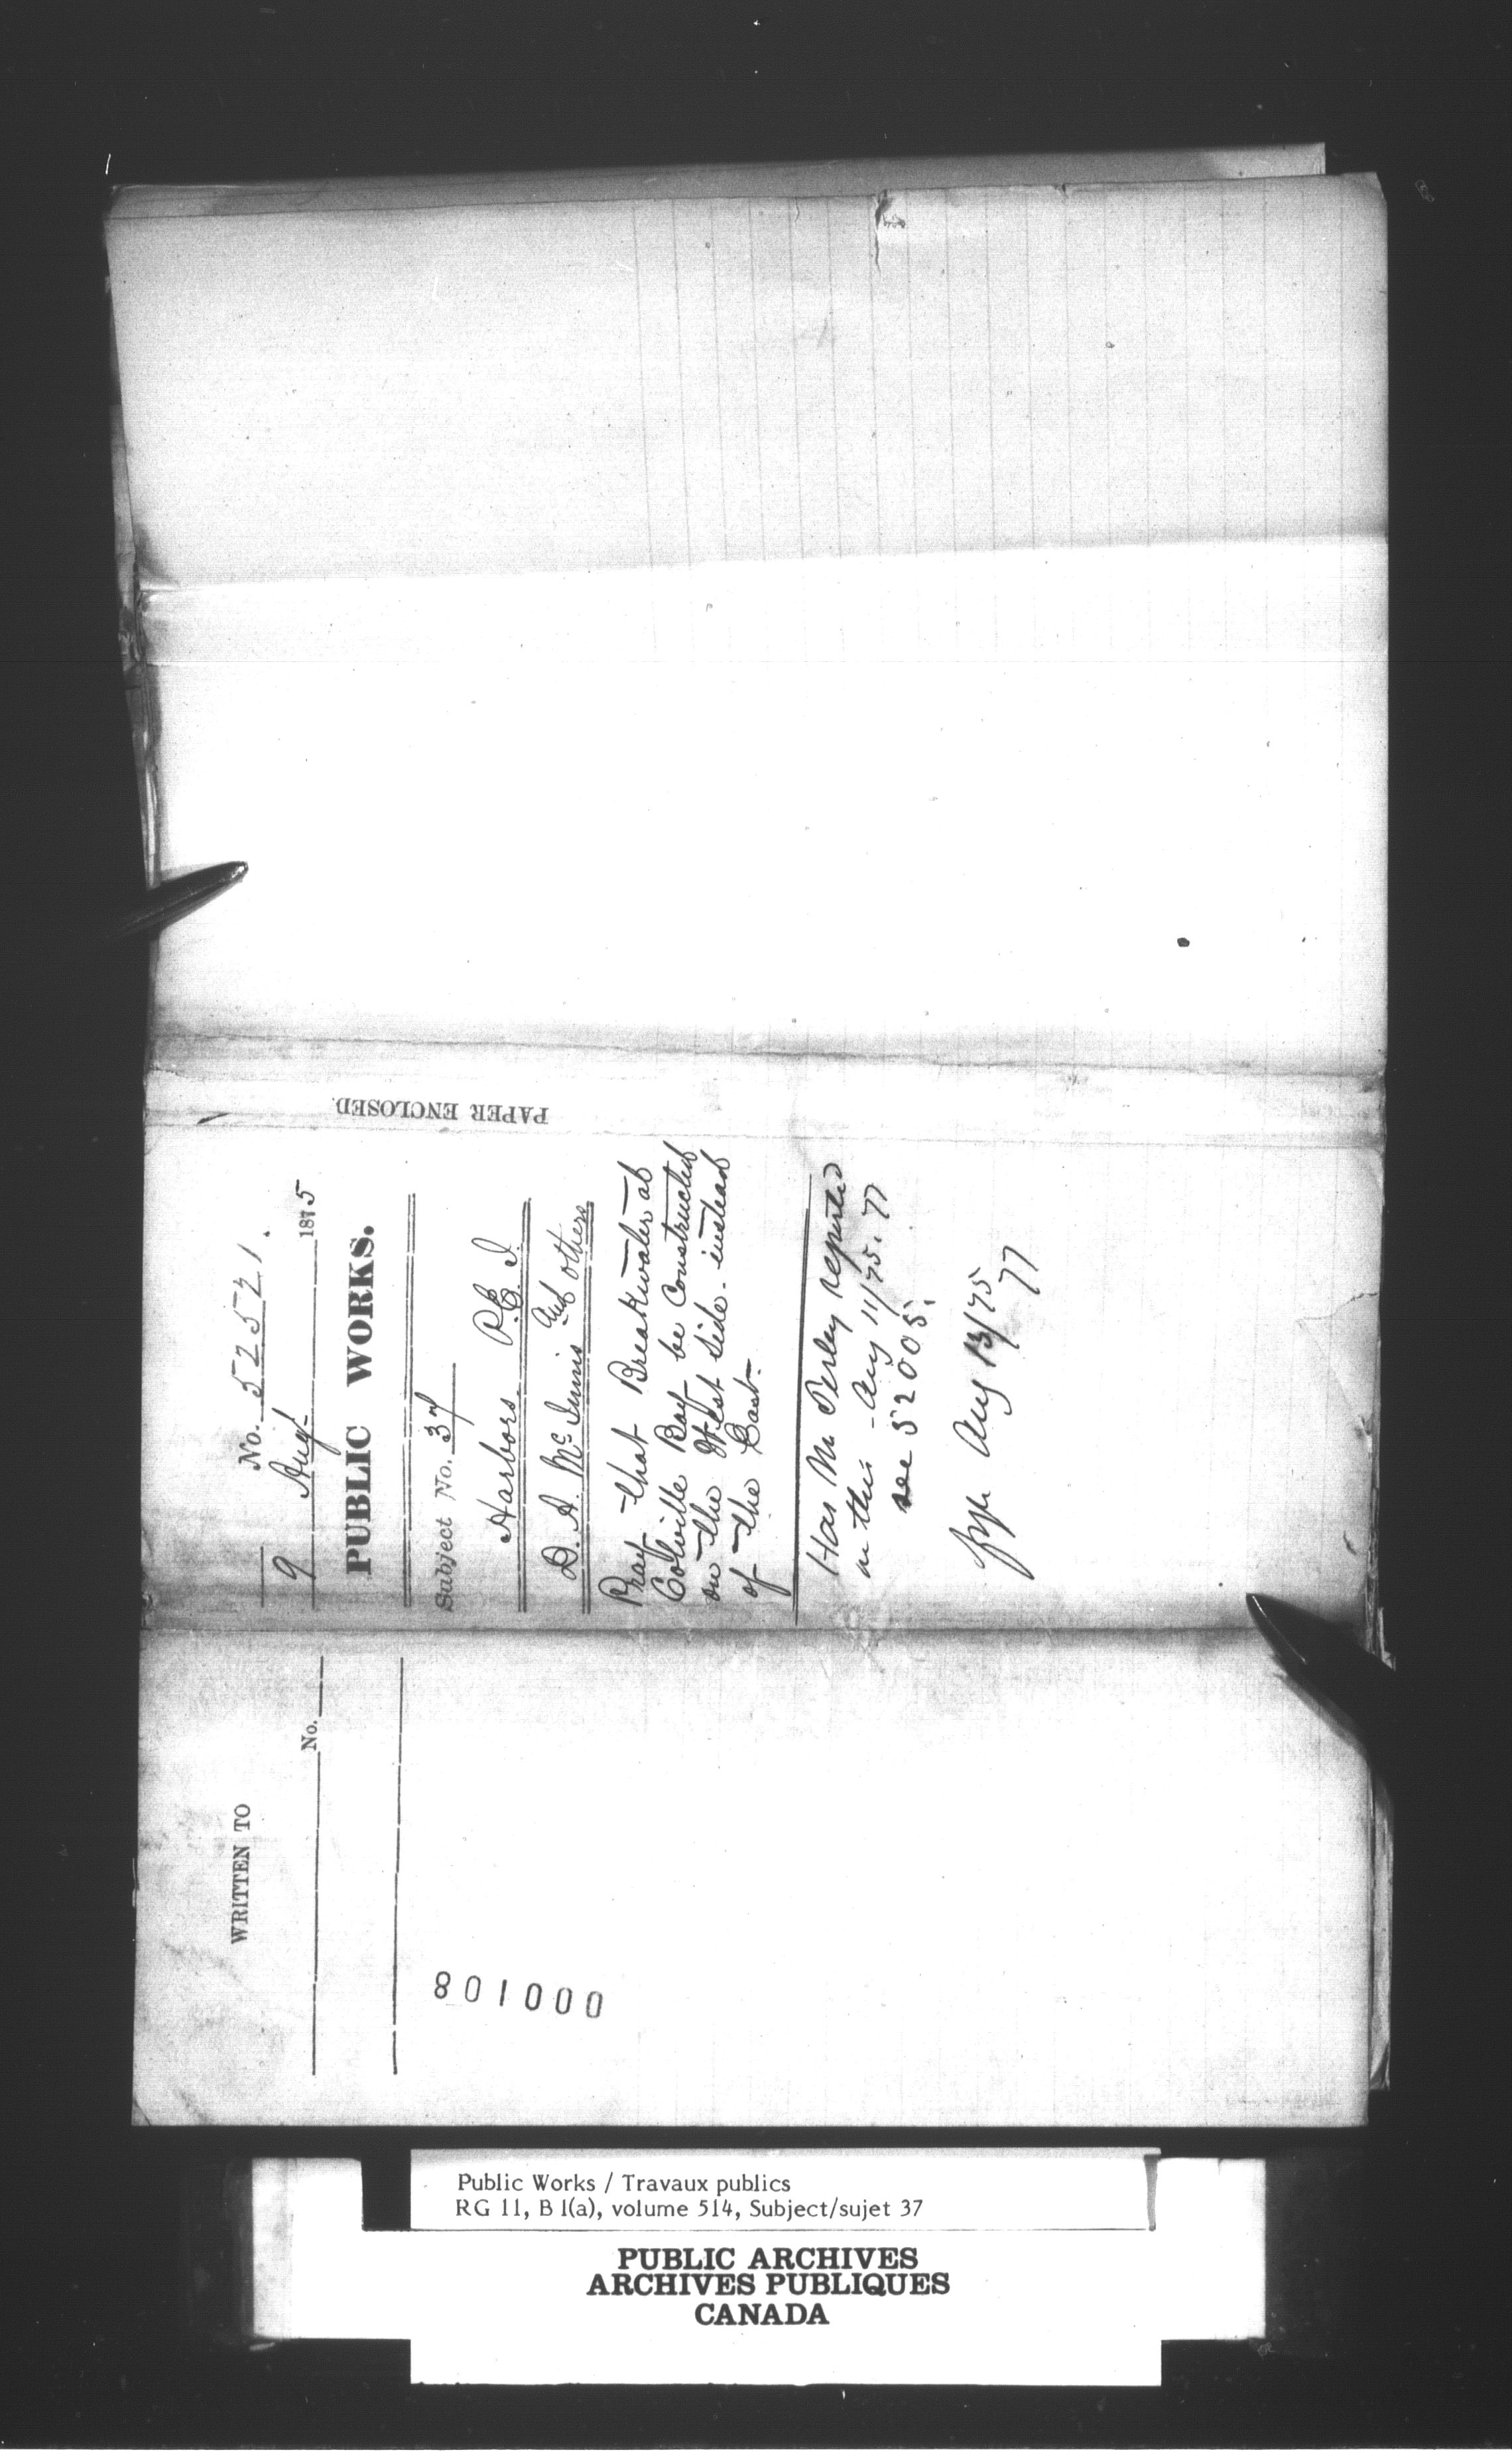 No. 52521.
9 Aug. 1875
PUBLIC WORKS.
Subject No. 37
Harbors P.E.I.
D. A. McInnis and others
Pray that Breakwater at
Colville Bay be Constructed
on the West side instead
of the East.
Has Mr Perley reported
on this - Aug 11/75.
see 52005.
Aug 13/75
PAPER ENCLOSED.
WRITTEN TO
No.
801000
Public Works / Travaux publics
RG 11, B 1(a), volume 514, Subject/sujet 37
PUBLIC ARCHIVES
ARCHIVES PUBLIQUES
CANADA